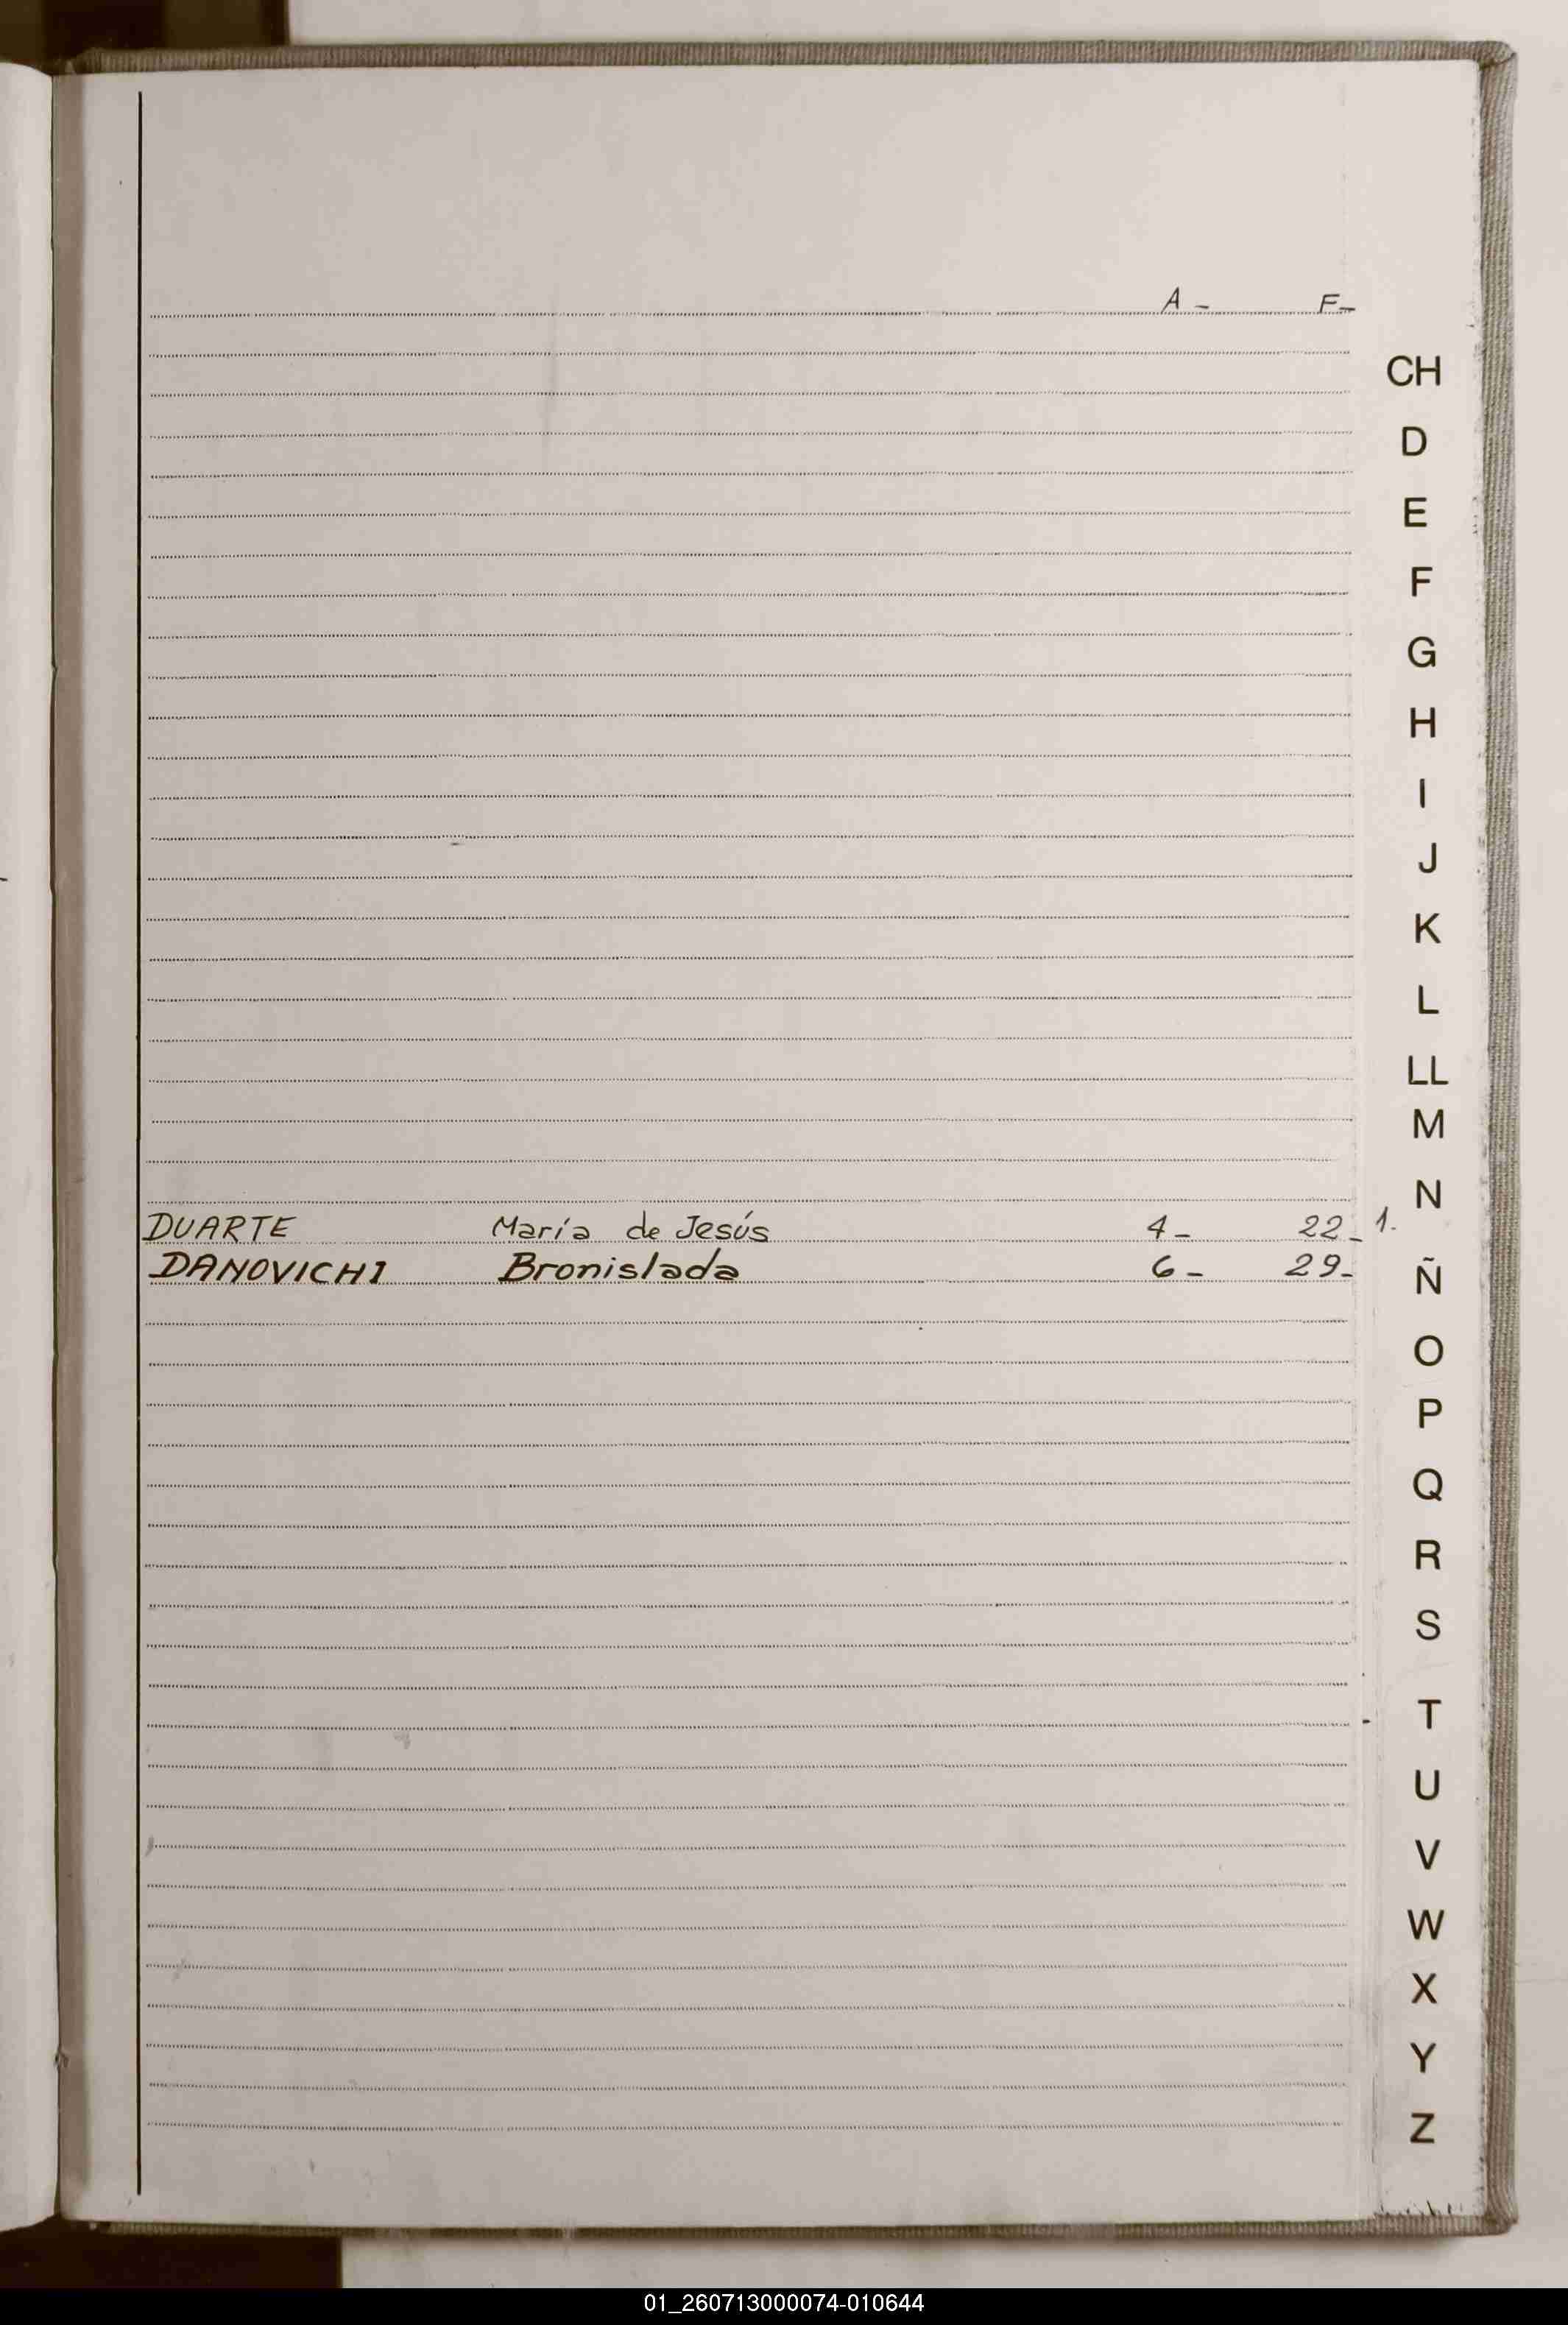 A - F-
CH
D
E
F
G
H
I
J
K
L
LL
M
N
DUARTE María de Jesús 4- 22- 1.
DANOVICHI Bronislada 6- 29-
Ñ
O
P
Q
R
S
T
U
V
W
X
Y
Z
01_260713000074-010644